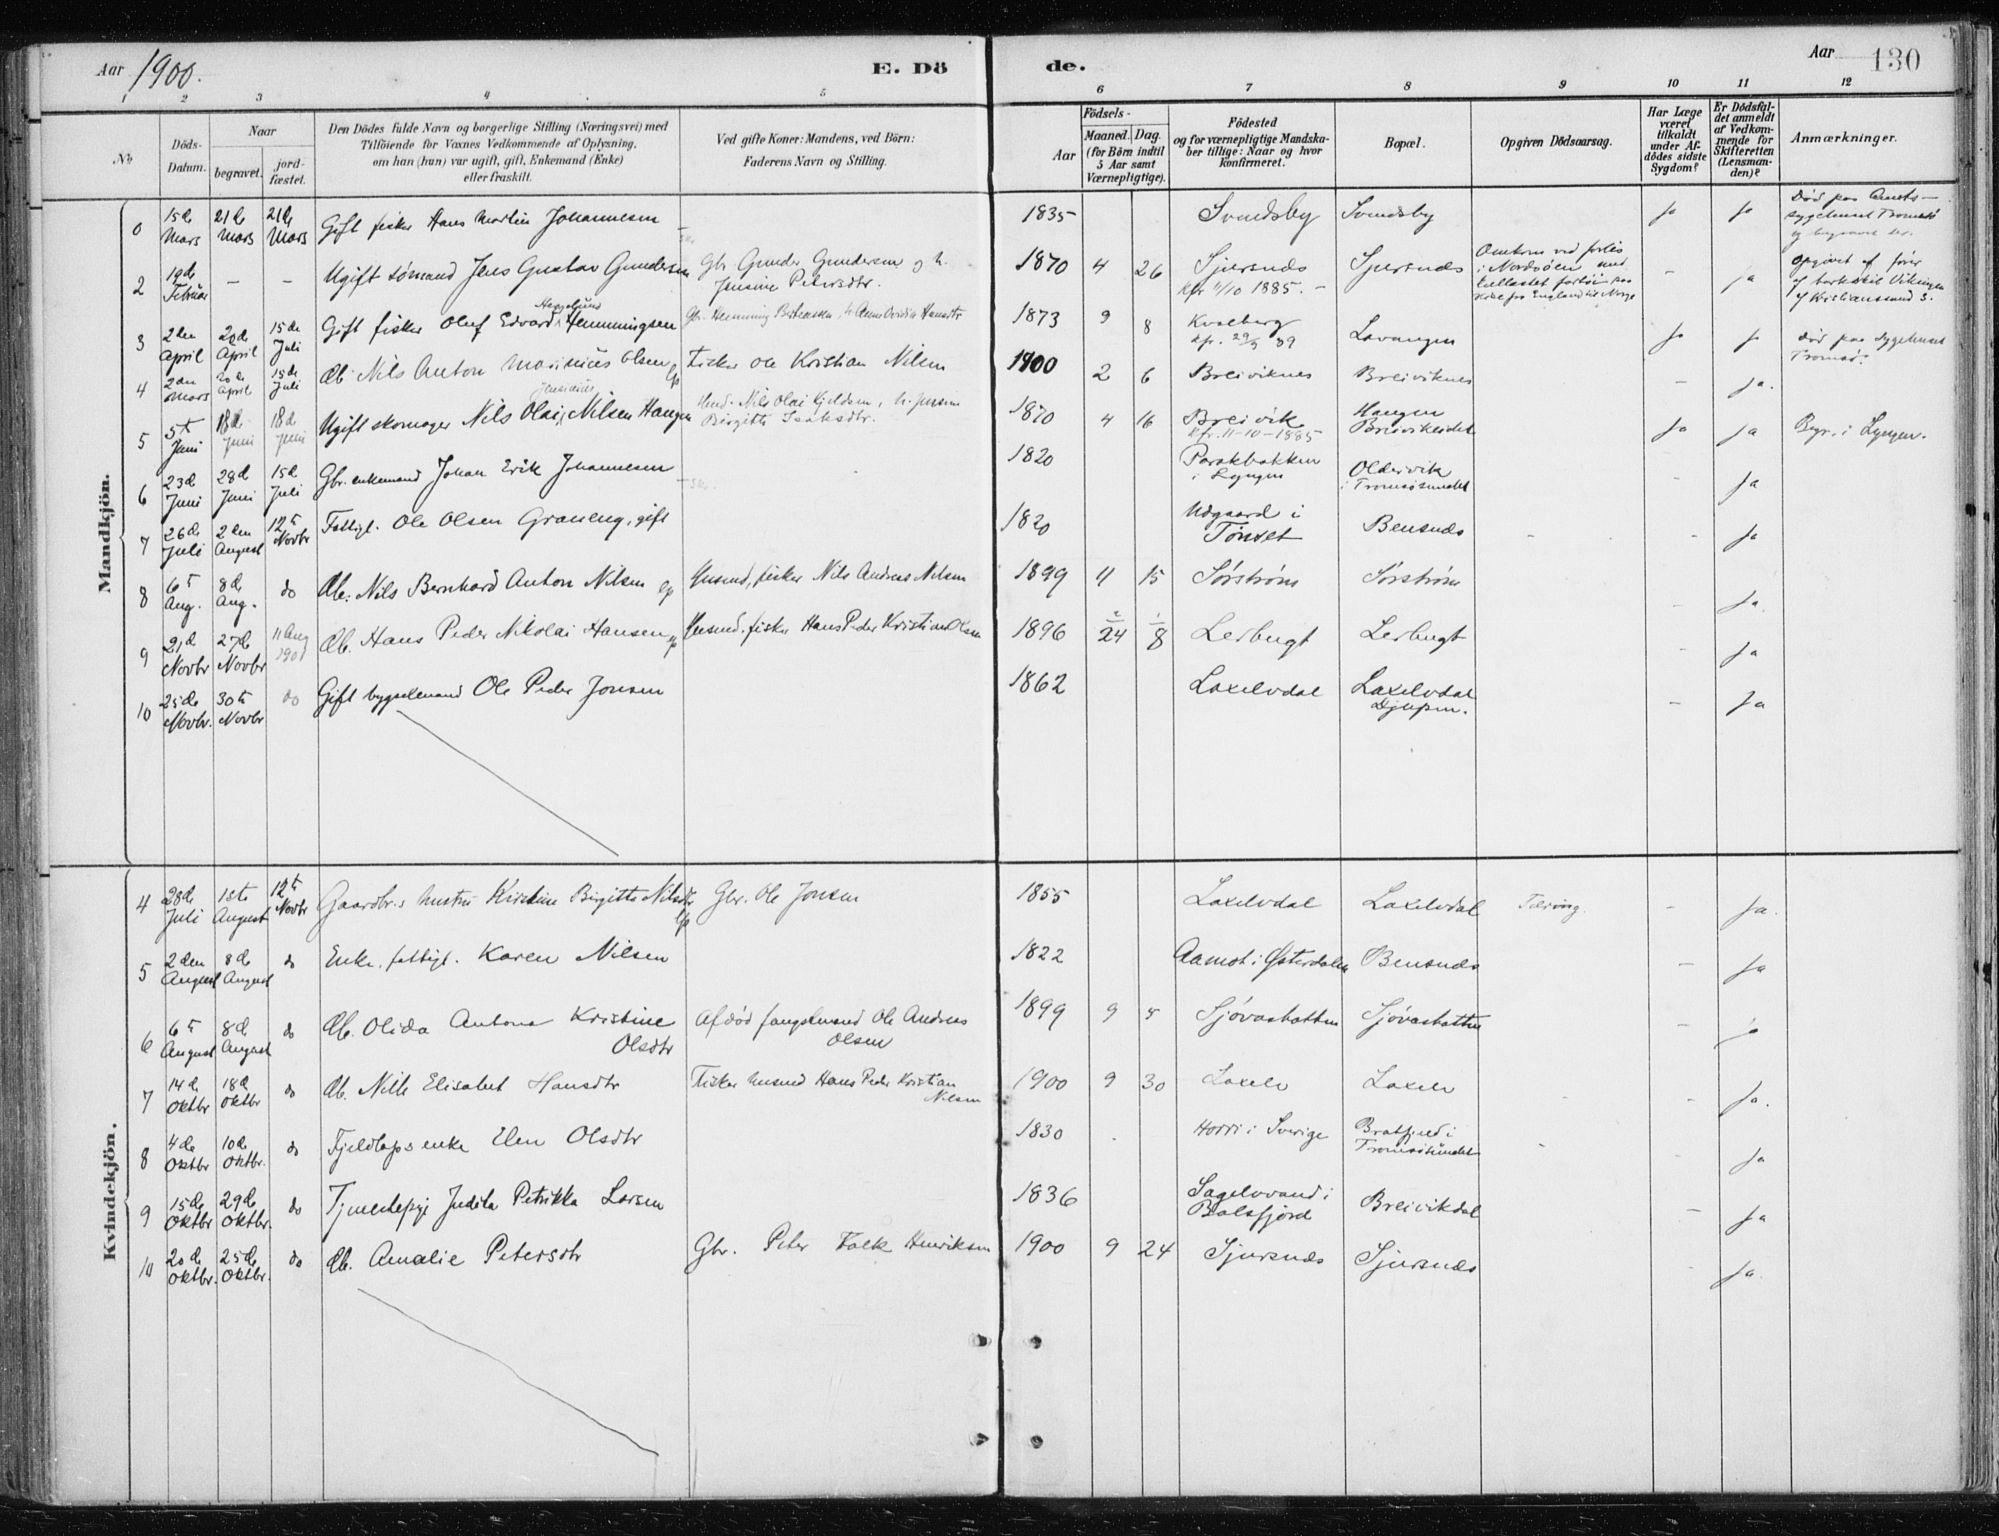 Aar 1900. E. Dö de. Aar 130
1 2 3 4 5 6 7 8 9 10 11 12
No
Döds-Datum.
Naar
begravet.
jordfæstet.
Den Dödes fulde Navn og borgerlige Stilling (Næringsvei) med
Tilföiende for Voxnes Vedkommende af Oplysning,
om han (hun) var ugift, gift, Enkemand (Enke)
eller fraskilt.
Ved gifte Koner: Mandens, ved Börn:
Faderens Navn og Stilling.
Födsels-
Aar
Maaned. Dag.
(for Börn indtil
5 Aar samt
Værnepligtige).
Födested
og for værnepligtige Mandska-
ber tillige: Naar og hvor
konfirmeret.
Bopæl.
Opgiven Dödsaarsag.
Har Læge
været
tilkaldt
under Af-
dödes sidste
Sygdom?
Er Dödsfal-
det anmeldt
af Vedkom-
mende for
Skifteretten
(Lensman-
den)?
Anmærkninger.
Mandkjön.
0 15de Mars 21de Mars 21de Mars Gift fisker Hans Martin Johannesen 1835 Svendsby Svendsby Ja Ja Död paa Amts-sygehuset Tromsö og begravet der.
2 19de Februar - - Ugift sömand Jens Gustav Gundersen Gbr Gunder Gundersen og h. Jensine Petersdtr. 1870 4 26 Sjursnæs kfr 11/10 1885. Sjursnæs Omkom ved forlis i Nordsöen - ja Opgivet af förer af barkskib Vikingen af Kristianssund S.
3 2den April 20de April 15de Juli Gift fisker Oluf Edvard Heggelund Hemmingsen 1873 9 8 Kvalberg kfr. 29/9 89 Lavangen Ja Ja Död paa Sygehuset Tromsö.
4 2den Mars 20de April 15de Juli Æb. Nils Anton Marinius Olsen Fisker Ole Kristian Nilsen 1900 2 6 Breiviknes Breiviknes - ja.
5 5te Juni 18de Juni 18de Juni Ugift skomager Nils Olai Jensinius Nilsen Haugen Husmd. Nils Olai Kjeldsen, h. Jensine Birgitte Isaksdtr. 1870 4 16 Breivik kfr. 11-10-1885 Haugen Breivikeidet Ja ja Begr. i Lyngen.
6 23de Juni 28de Juni 15de Juli Gbr. enkemand Johan Erik Johannesen 1820 Parakbakken i Lyngen Oldervik i Tromsösundet - ja
7 26de Juli 2den August 12te Novbr Fattigl. Ole Olsen Graneng, gift 1820 Udgaard i Tönset Bensnæs - - Ja
8 6te Aug. 8de Aug. do Æb. Nils Bernhard Anton Nilsen Husmd, fisker Nils Andreas Nilsen 1899 11 15 Sörström Sörström - Ja.
9 21de Novbr 27de Novbr 11 Aug 1901 Æb. Hans Peder Nikolai Hansen Husmd. fisker Hans Peder Kristian Olsen 1896 24 8 Lerbugt Lerbugt - Ja
10 25de Novbr. 30te Novbr do Gift bygselmand Ole Peder Jonsen 1862 Laxelvdal Laxelvdal Djupen. - Ja
Kvindekjön.
4 28de Juli 1ste August 12te Novbr Gaardbr.s hustru Kirstine Birgitte Nilsdtr Gbr. Ole Jonsen 1855 Laxelvdal Laxelvdal Tæring. - Ja.
5 2den August 8de August do Enke, fattigl. Karen Nilsen 1822 Aamot i Österdalen Bensnæs - Ja
6 6te August 8de August do Æb. Olida Antona Kristine Olsdtr Afdöd fangstmand Ole Andreas Olsen 1899 9 5 Sjövashatten Sjövashatten - ja
7 14de Oktbr 18de Oktbr do Æb. Nille Elisabet Hansdtr Fisker husmd Hans Peder Kristian Nilsen 1900 9 30 Laxelv Laxelv - - Ja.
8 4de Oktbr 10de Oktbr. do Fjeldlaps enke Elen Olsdtr 1830 i Sverige Bratfjeld i Tromsösundet - Ja
9 15de Oktbr 29de Oktbr. do Tjenestepige Judita Petrikka Larsen 1836 Sagelvvand i Balsfjord Breivikdal - Ja
10 20de Oktbr. 25de Oktbr. do Æb. Amalie Petersdtr Gbr. Peter Falk Henriksen 1900 9 24 Sjursnæs Sjursnæs - Ja.